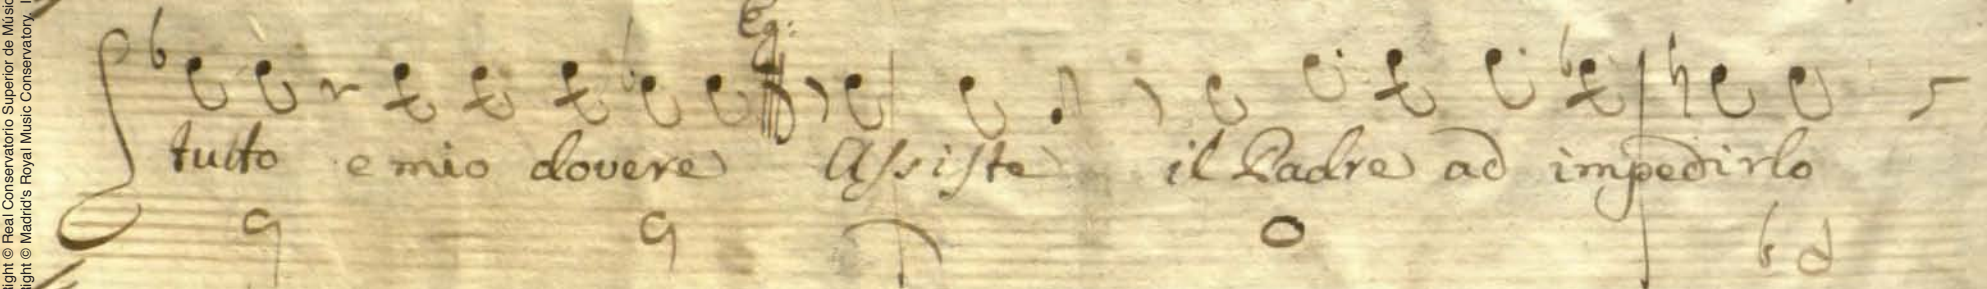 ight © Real Conservatorio Superior de Músic
right © Madrid's Royal Music Conservatory. l
Eg:
tutto e mio dovere Assiste il Padre ad impedirlo